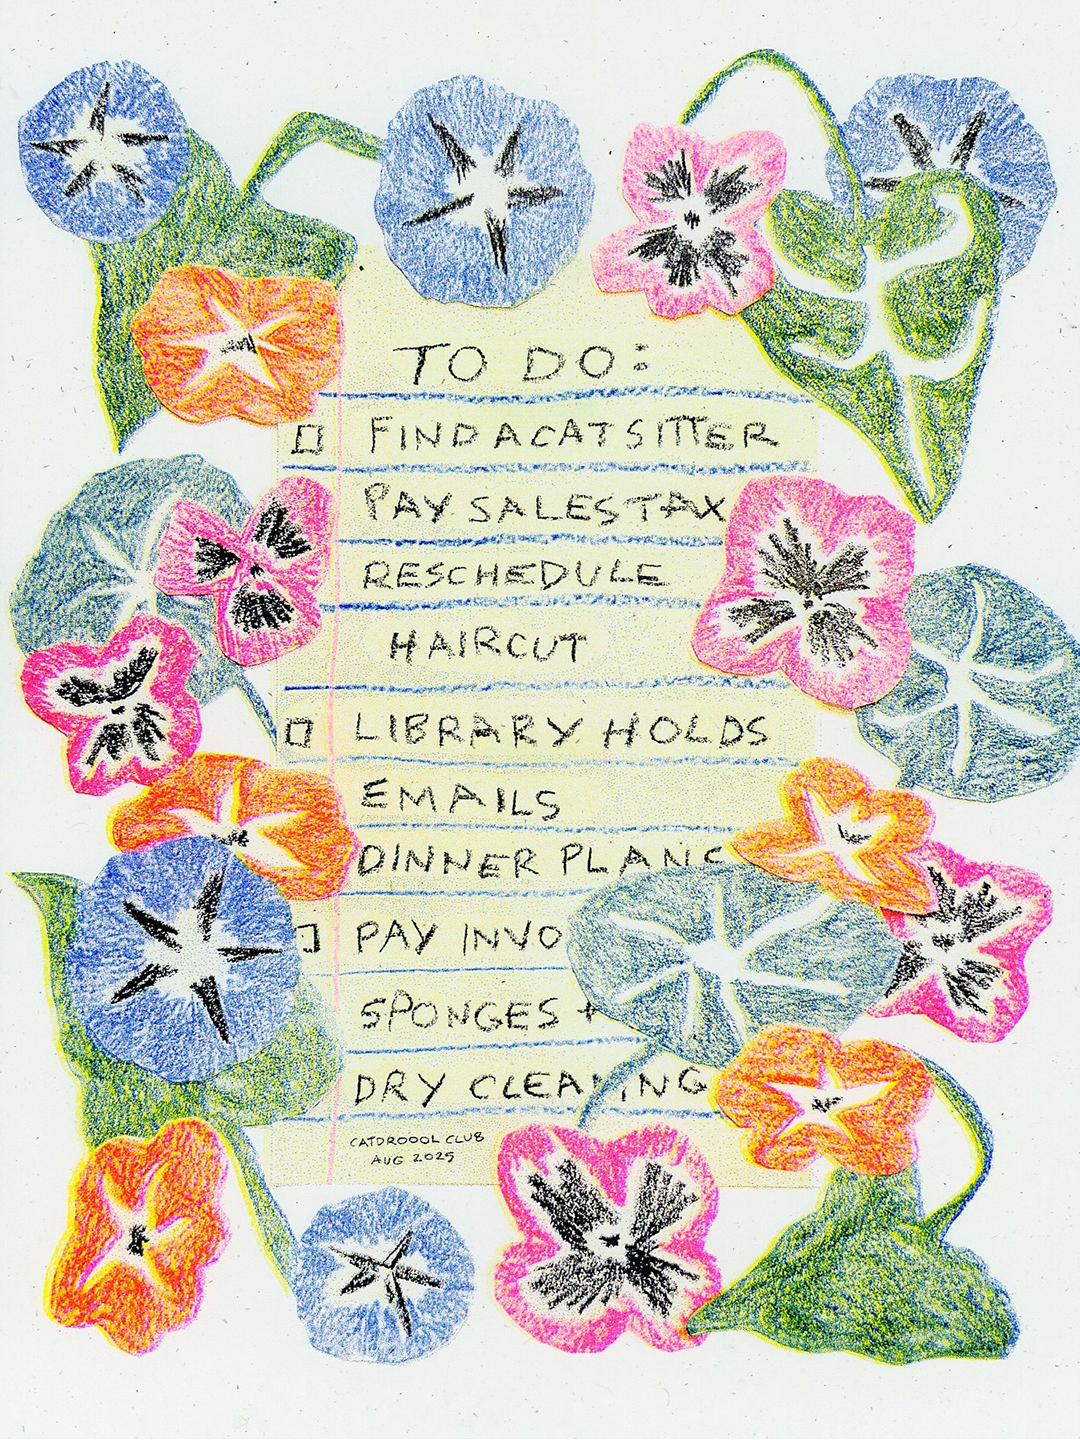 TO DO:
FIND A CAT SITTER
PAY SALES TAX
RESCHEDULE
HAIRCUT
LIBRARY HOLDS
EMAILS
DINNER PLANS
PAY INVO
SPONGES +
DRY CLEANING
CATDROOOL CLUB
AUG 2025